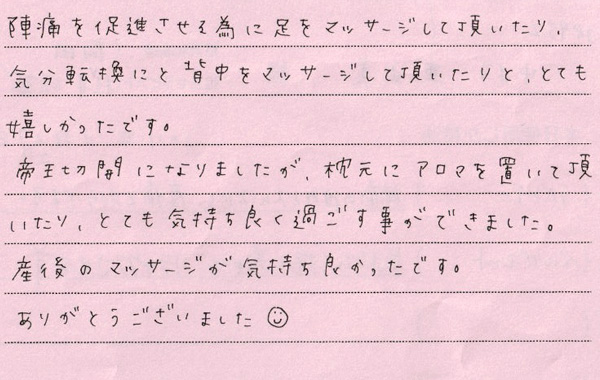 陣痛を促進させる為に足をマッサージして頂いたり、
気分転換にと背中をマッサージして頂いたりと、とても
嬉しかったです。
帝王切開になりましたが、枕元にアロマを置いて頂
いたり、とても気持ち良く過ごす事ができました。
産後のマッサージが気持ち良かったです。
ありがとうございました☺